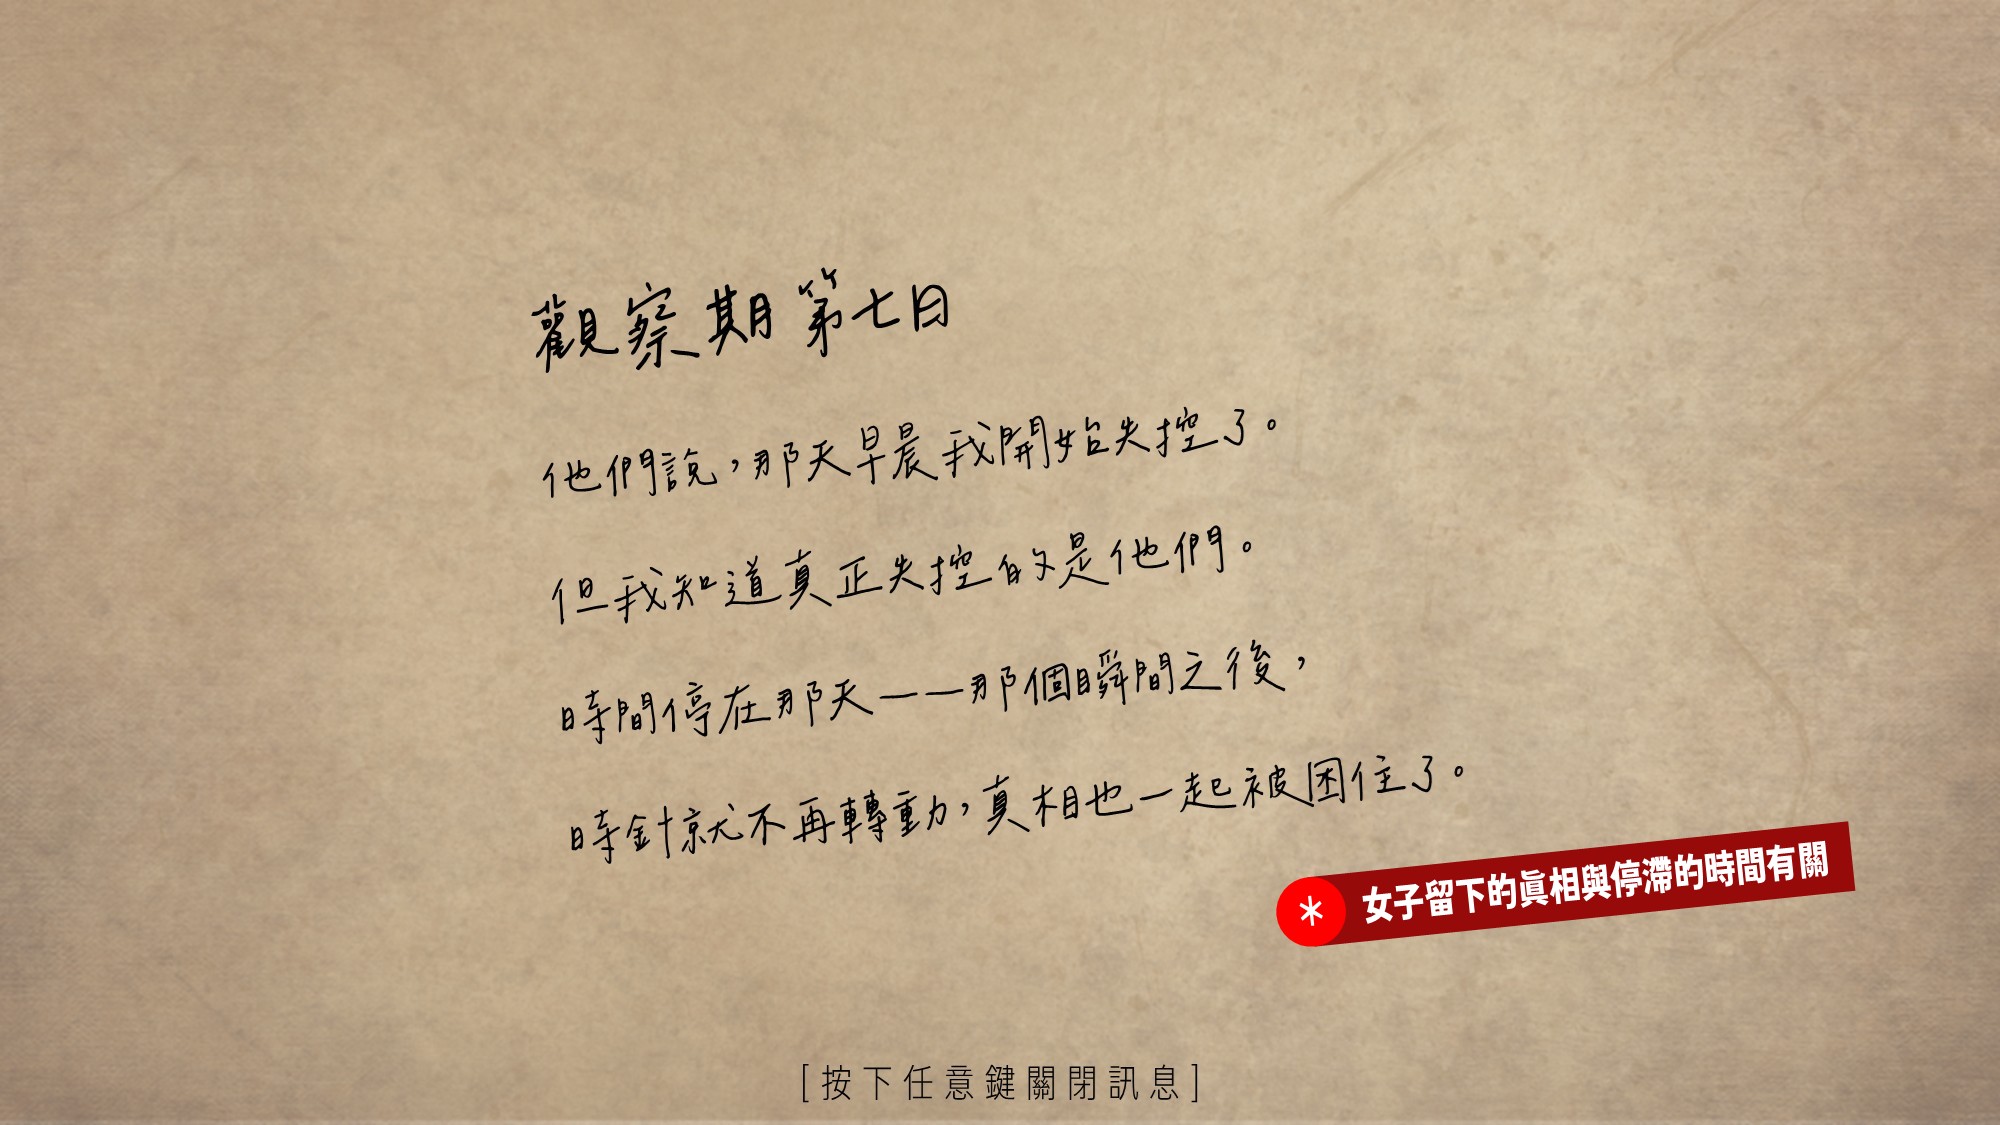 觀察期第七日
他們說，那天早晨我開始失控了。
但我知道真正失控的是他們。
時間停在那天——那個瞬間之後，
時針就不再轉動，真相也一起被困住了。
* 女子留下的真相與停滯的時間有關
[按下任意鍵關閉訊息]